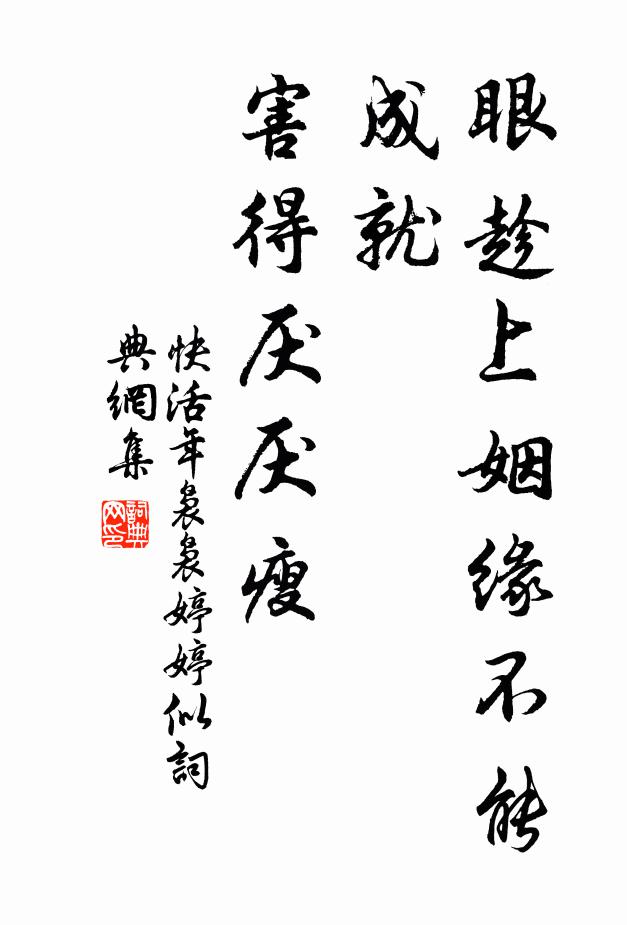 眼趁上姻缘不能
成就
害得厌厌瘦
快活年袅袅婷婷似詞
典網集
詞典网印